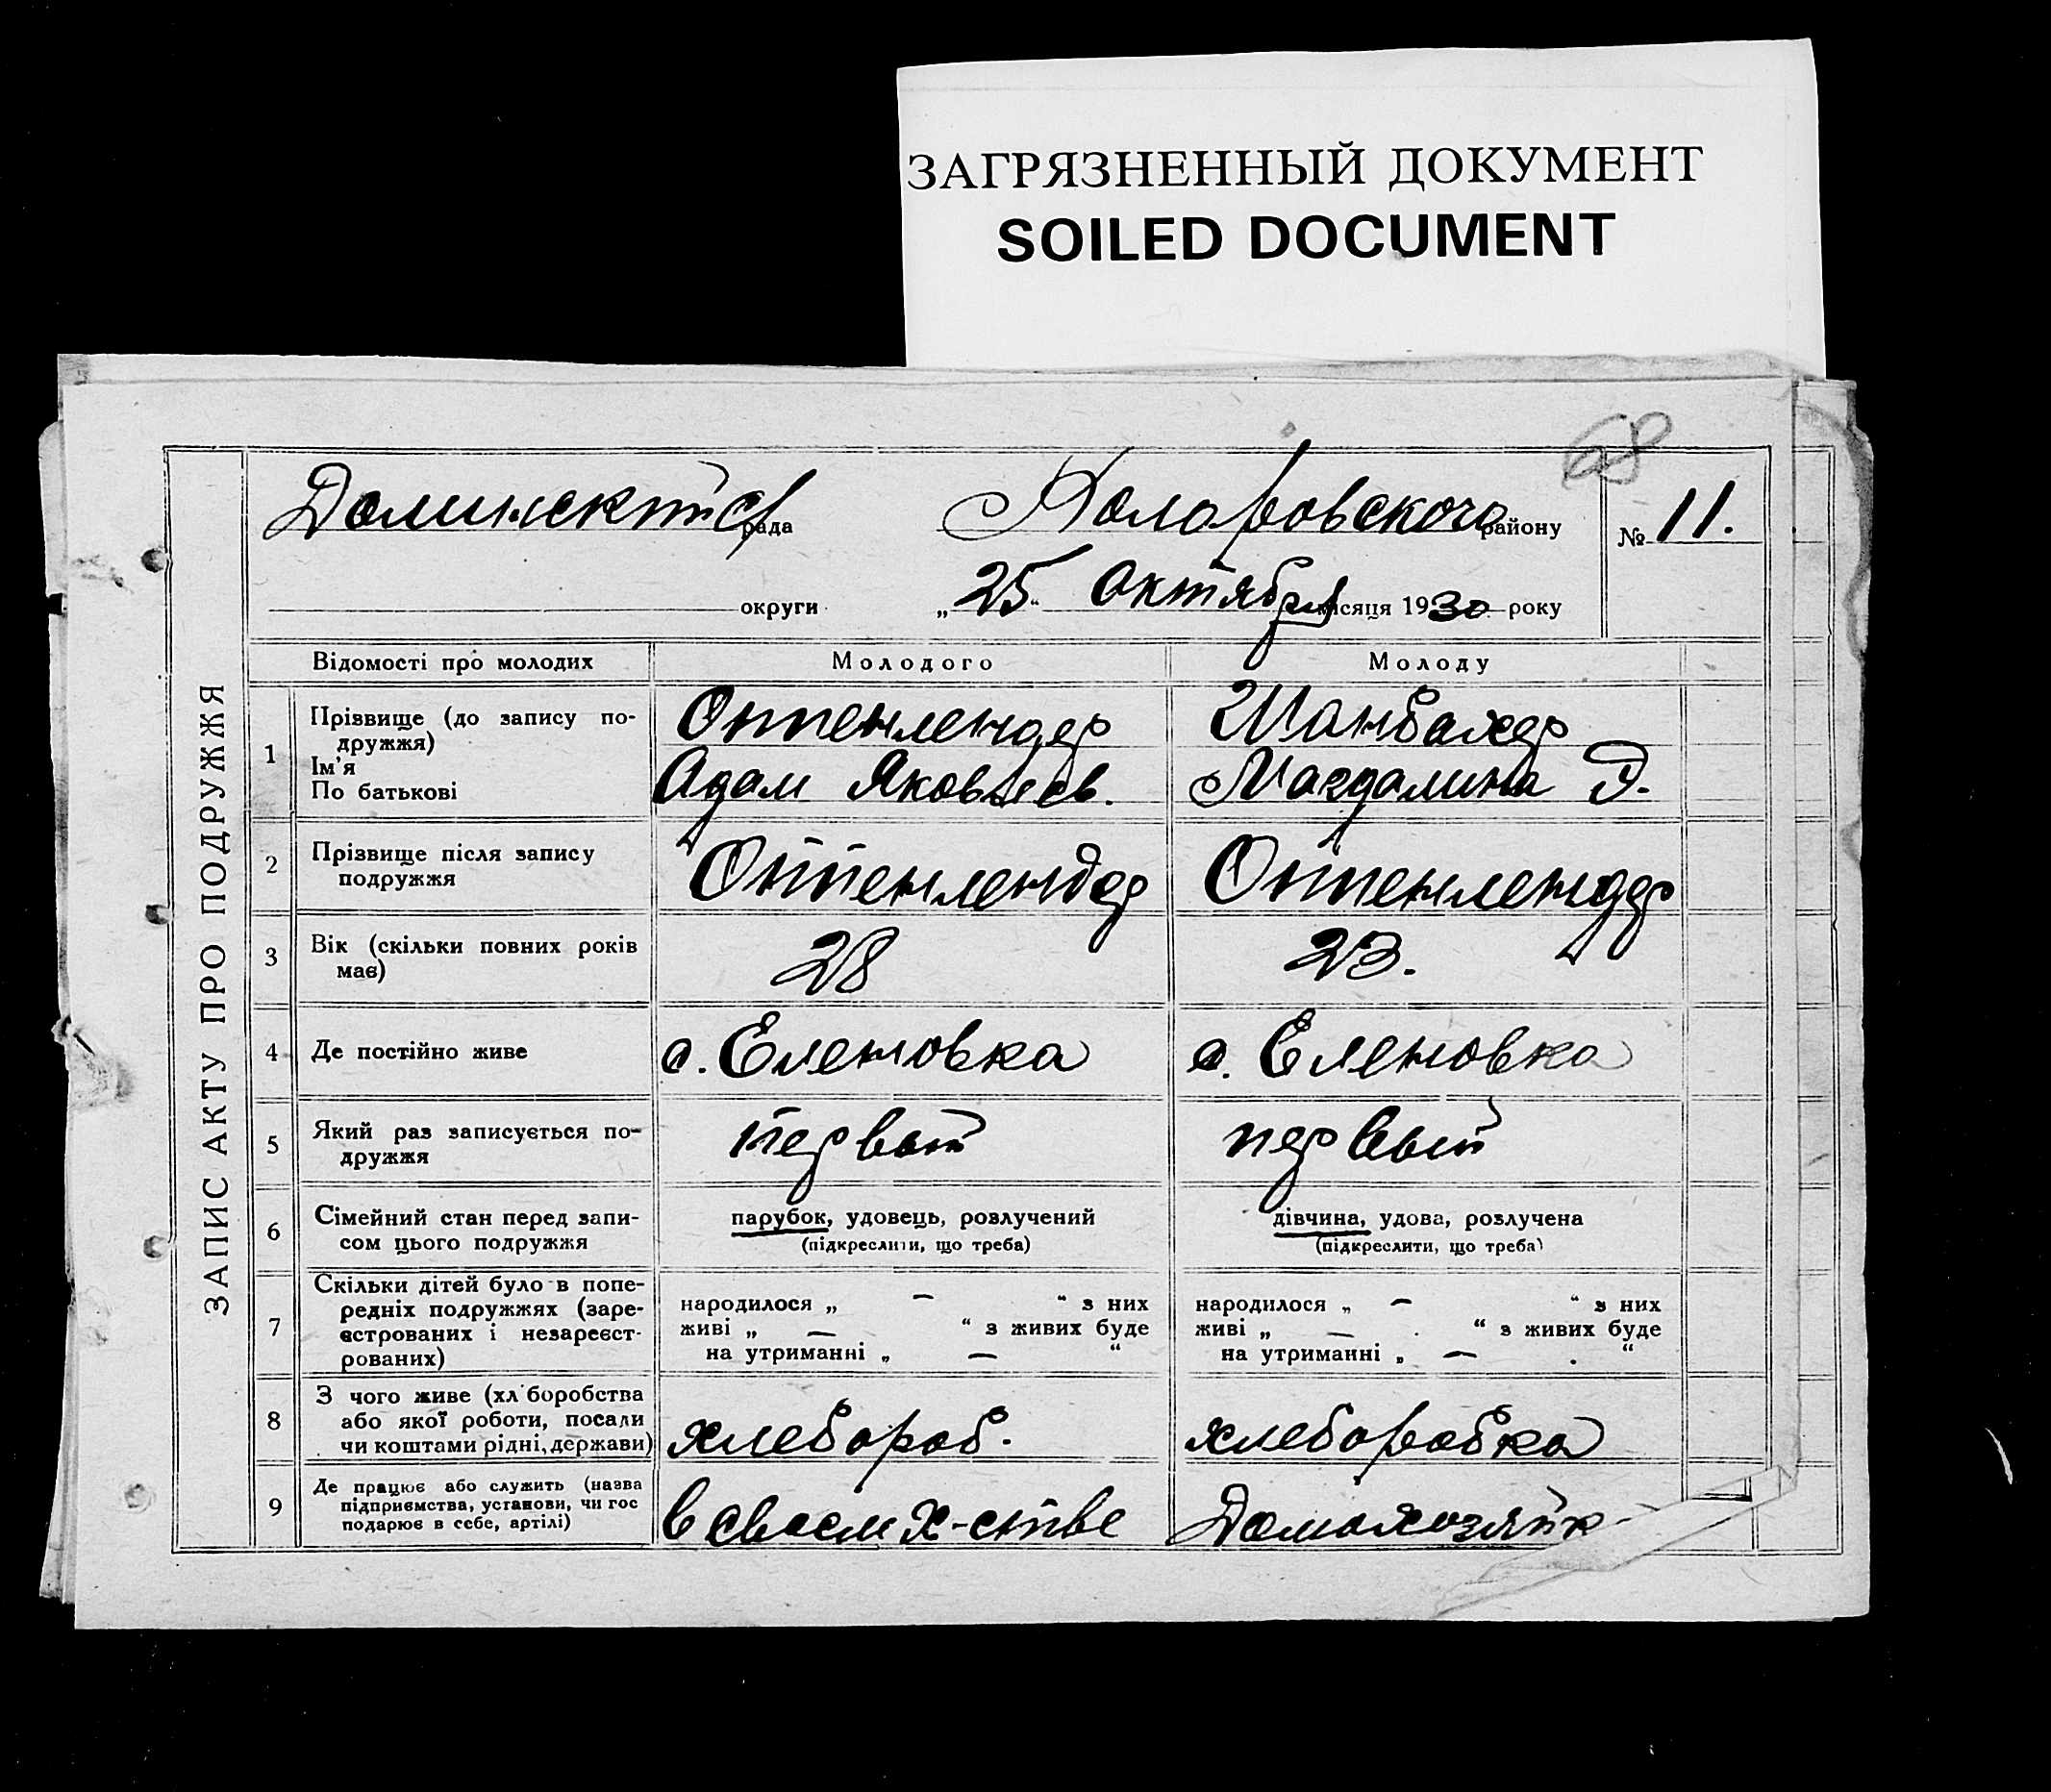 ЗАГРЯЗНЕННЫЙ ДОКУМЕНТ
SOILED DOCUMENT
68
ЗАПИС АКТУ ПРО ПОДРУЖЖЯ
рада
району
№ 11.
округи „25“ Октября місяця 1930 року
Відомості про молодих Молодого Молоду
1 Прізвище (до запису по-
дружжя)
Ім'я
По батькові
Оттенлендер
Адам Яковлев.
Шанбахер
Магдалина
2 Прізвище після запису
подружжя
Оттенлендер
Оттенлендер
3 Вік (скільки повних років
має)
28
23.
4 Де постійно живе
с. Еленовка
с. Еленовка
5 Який раз записується по-
дружжя
первый
первый
6 Сімейний стан перед запи-
сом цього подружжя
парубок, удовець, розлучений
(підкреслити, що треба)
дівчина, удова, розлучена
(підкреслити, що треба)
7 Скільки дітей було в попе-
редніх подружжях (заре-
єстрованих і незареєст-
рованих)
народилося „ — “ з них
живі „ — “ з живих буде
на утриманні „ — “
народилося „ — “ з них
живі „ — “ з живих буде
на утриманні „ — “
8 З чого живе (хл боробства
або якої роботи, посади
чи коштами рідні, держави)
хлебороб.
хлеборобка
9 Де працює або служить (назва
підприємства, установи, чи гос
подарює в себе, артілі)
в своем х-стве
Домохозяйк